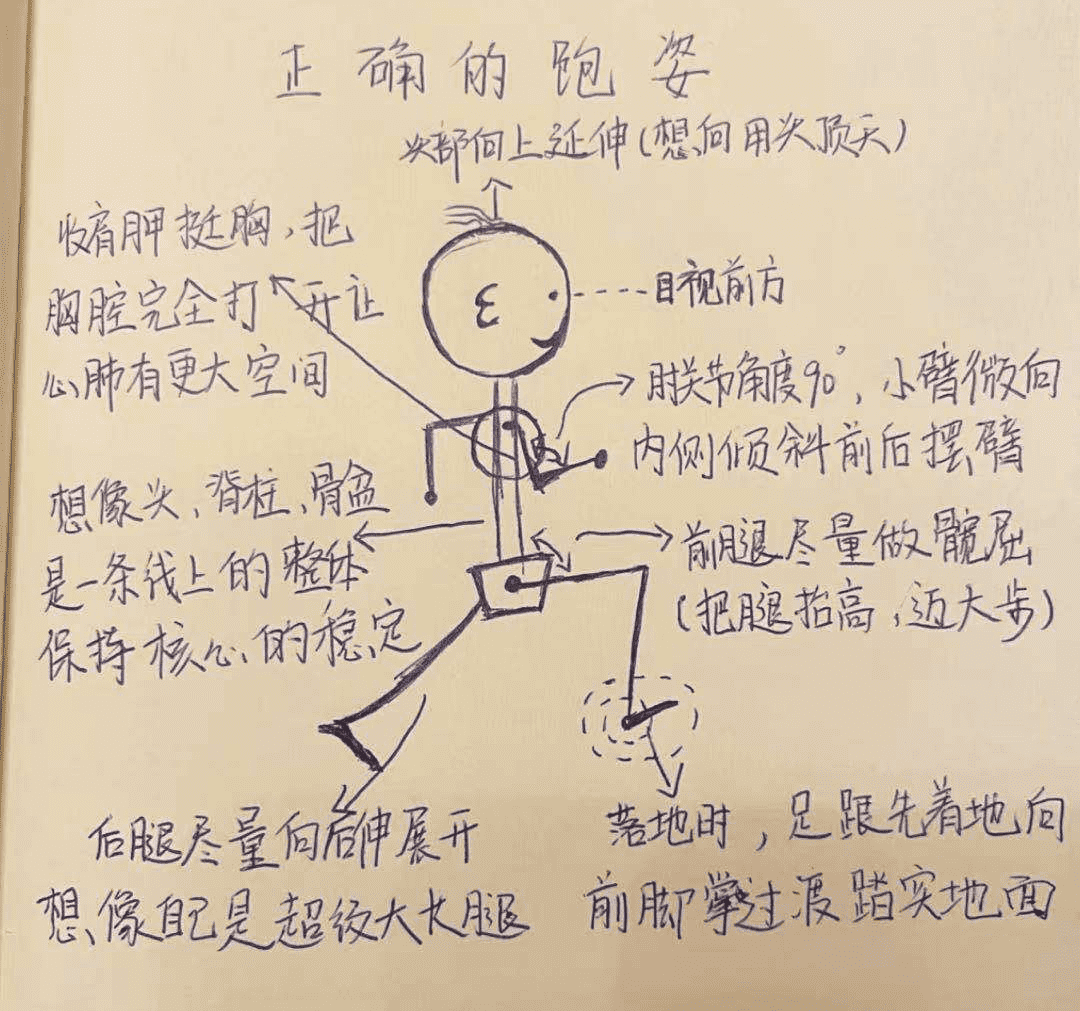 正确的跑姿
头部向上延伸(想向用头顶天)
收肩胛挺胸,把
胸腔完全打开让
心肺有更大空间
目视前方
肘关节角度90°,小臂微向
内侧倾斜前后摆臂
想像头、脊柱、骨盆
是一条线上的整体
保持核心的稳定
前腿尽量做髋屈
(把腿抬高,迈大步)
后腿尽量向后伸展开
想像自己是超级大长腿
落地时,足跟先着地向
前脚掌过渡踏实地面